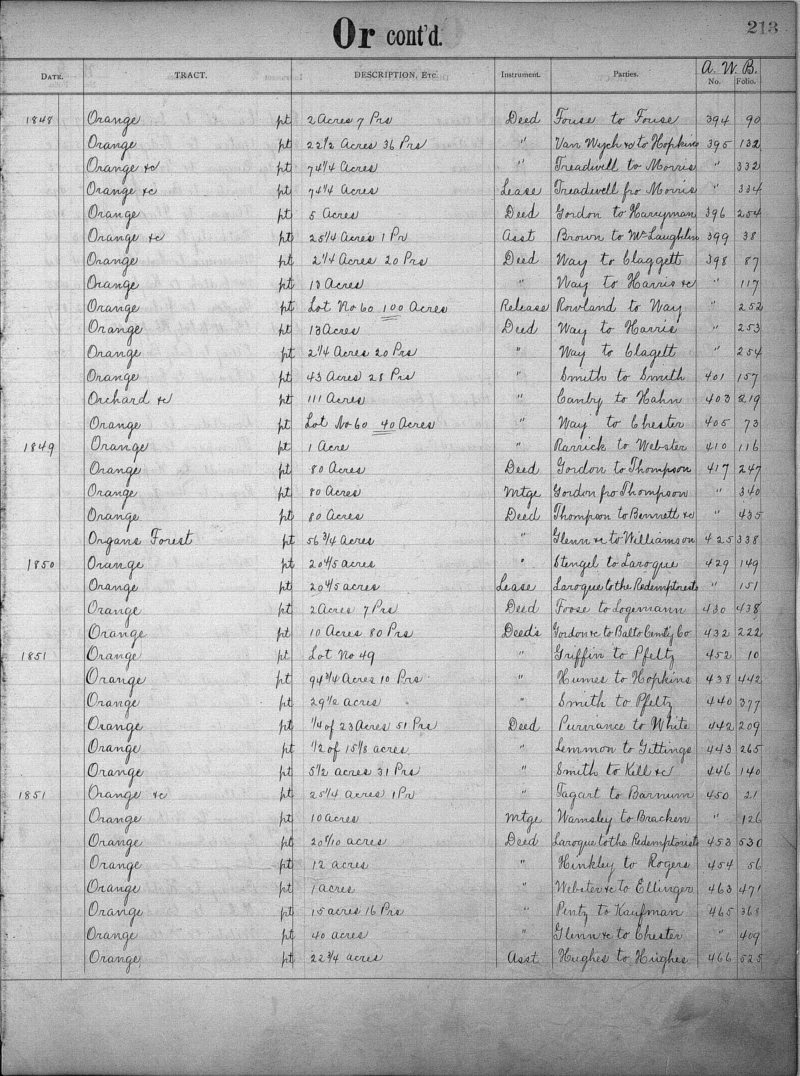 Or cont'd.
213
DATE. TRACT. DESCRIPTION, Etc. Instrument. Parties. A. W. B. No. Folio.
1848 Orange pt 2 Acres 7 Prs Deed Fouse to Fouse 394 90
Orange pt 22 1/2 Acres 36 Prs " Van Wych &c to Hopkins 395 132
Orange &c pt 74 1/4 Acres " Treadwell to Morris " 332
Orange &c pt 74 1/4 Acres Lease Treadwell fro Morris " 334
Orange pt 5 Acres Deed Gordon to Harryman 396 254
Orange &c pt 25 1/4 Acres 1 Pr Asst Brown to McLaughlin 399 38
Orange pt 2 1/4 Acres 20 Prs Deed Way to Claggett 398 87
Orange pt 18 Acres " Way to Harris &c " 117
Orange pt Lot No 60 100 Acres Release Rowland to Way " 252
Orange pt 13 Acres Deed Way to Harris " 253
Orange pt 2 1/4 Acres 20 Prs " Way to Clagett " 254
Orange pt 43 Acres 28 Prs " Smith to Smith 401 157
Orchard &c pt 111 Acres " Canby to Hahn 403 219
Orange pt Lot No 60 40 Acres " Way to Chester 405 73
1849 Orange pt 1 Acre " Rarrick to Webster 410 116
Orange pt 80 Acres Deed Gordon to Thompson 417 247
Orange pt 80 Acres Mtge Gordon fro Thompson " 340
Orange pt 80 Acres Deed Thompson to Bennett &c " 435
Organs Forest pt 56 3/4 Acres " Glenn &c to Williamson 425 338
1850 Orange pt 20 4/5 acres " Stengel to Laroque 429 149
Orange pt 20 4/5 acres Lease Laroque to the Redemptorists " 151
Orange pt 2 Acres 7 Prs Deed Foose to Logemann 430 438
Orange pt 10 Acres 80 Prs Deeds Gordon &c to Balto Cemt'y Co 432 222
1851 Orange pt Lot No 49 " Griffin to Pfeltz 452 10
Orange pt 94 3/4 Acres 10 Prs " Humes to Hopkins 438 442
Orange pt 29 1/2 acres " Smith to Pfeltz 440 377
Orange pt 1/4 of 23 Acres 51 Prs Deed Purviance to White 442 209
Orange pt 1/2 of 15 1/8 acres " Lemmon to Gittings 443 265
Orange pt 5 1/2 acres 31 Prs " Smith to Kill &c 446 140
1851 Orange &c pt 25 1/4 acres 1 Pr " Tagart to Barnum 450 21
Orange pt 10 acres Mtge Wamsley to Bracken " 126
Orange pt 20 7/10 acres Deed Laroque to the Redemptorists 453 530
Orange pt 12 acres " Hinkley to Rogers 454 56
Orange pt 1 acres " Webster &c to Ellinger 463 471
Orange pt 15 acres 16 Prs " Pentz to Kaufman 465 368
Orange pt 40 acres " Glenn &c to Chester " 409
Orange pt 22 3/4 acres Asst Hughes to Hughes 466 525